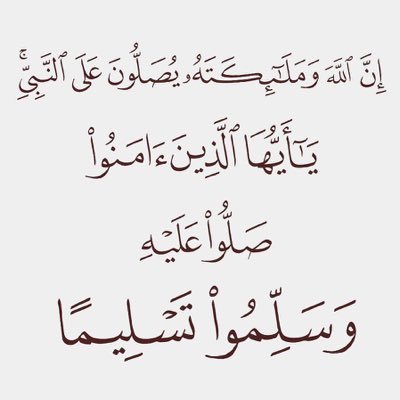 إِنَّ ٱللَّهَ وَمَلَـٰٓئِكَتَهُۥ يُصَلُّونَ عَلَى ٱلنَّبِىِّۚ
يَـٰٓأَيُّهَا ٱلَّذِينَ ءَامَنُوا۟
صَلُّوا۟ عَلَيْهِ
وَسَلِّمُوا۟ تَسْلِيمًا